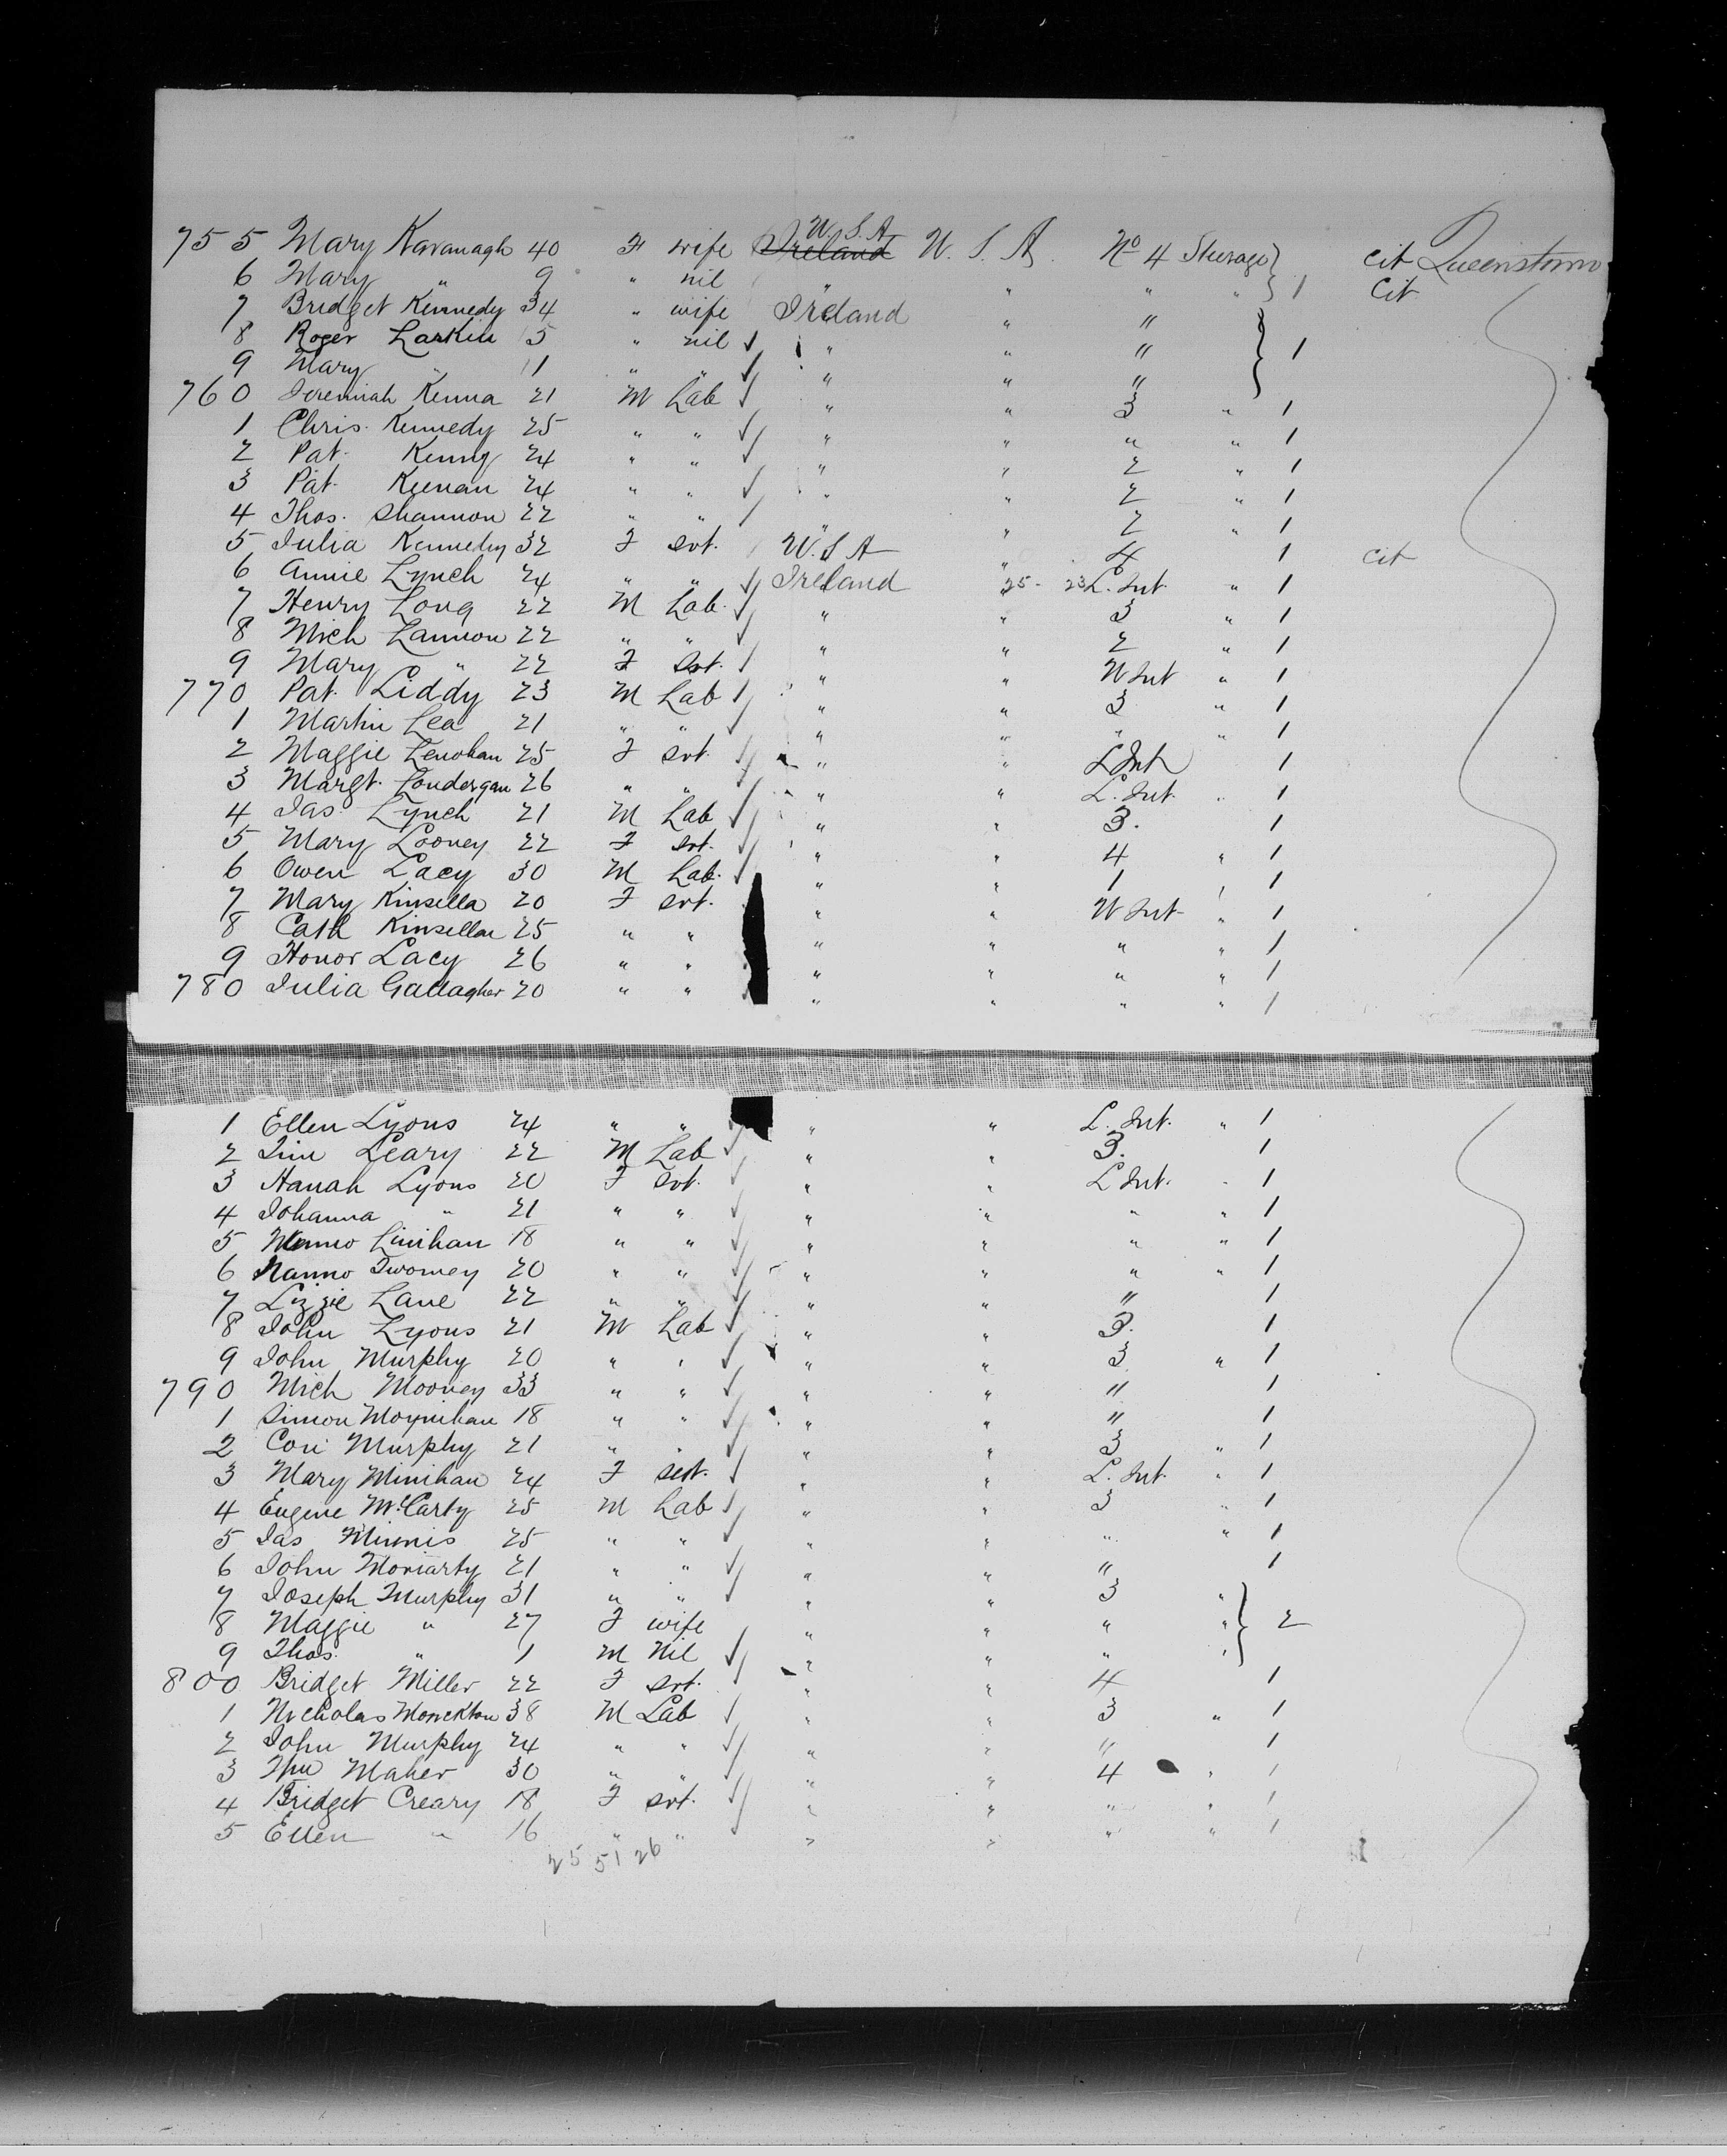 755 Mary Kavanagh 40 F wife Ireland U.S.A U.S.A. No 4 Steerage } cit Queenstown
6 Mary " 9 " nil " " " " } 1 Cit
7 Bridget Kennedy 34 " wife Ireland " "
8 Roger Larkin 5 " nil " " " } 1
9 Mary " 11 " " " " "
760 Jeremiah Kenna 21 M Lab " " 3 " 1
1 Chris. Kennedy 25 " " " " " " 1
2 Pat. Kenny 24 " " " " 2 " 1
3 Pat. Keenan 24 " " " " 2 " 1
4 Thos. Shannon 22 " " " " 2 " 1
5 Julia Kennedy 32 F svt. U.S.A " 4 1 cit
6 Annie Lynch 24 " " Ireland 25- 23 L. Int. " 1
7 Henry Long 22 M Lab. " " 3 " 1
8 Mich Lannon 22 " " " " 2 " 1
9 Mary " 22 F svt. " " W Int " 1
770 Pat. Liddy 23 M Lab " " 3 " 1
1 Martin Lea 21 " " " " " " 1
2 Maggie Lenohan 25 F svt. " " L Int 1
3 Margt. Londergan 26 " " " " L. Int. " 1
4 Jas. Lynch 21 M Lab " " 3. 1
5 Mary Looney 22 F svt. " " 4 " 1
6 Owen Lacy 30 M Lab. " " 1 1
7 Mary Kinsella 20 F svt. " " W Int " 1
8 Cath Kinsellar 25 " " " " " " 1
9 Honor Lacy 26 " " " " " " 1
780 Julia Gallagher 20 " " " " " " 1
1 Ellen Lyons 24 " " " " L. Int. " 1
2 Tim Leary 22 M Lab " " 3. 1
3 Hanah Lyons 20 F svt. " " L Int. " 1
4 Johanna " 21 " " " " " " 1
5 Linihan 18 " " " " " " 1
6 Nanno Twomey 20 " " " " " " 1
7 Lizzie Lane 22 " " " " " 1
8 John Lyons 21 M Lab " " 3. 1
9 John Murphy 20 " " " " 3 " 1
790 Mich Mooney 33 " " " " " 1
1 Simon Moynihan 18 " " " " " 1
2 Con Murphy 21 " " " " 3 " 1
3 Mary Minihan 24 F svt. " " L. Int. " 1
4 Eugene McCarty 25 M Lab " " 3 " 1
5 Jas Minnis 25 " " " " " " 1
6 John Moriarty 21 " " " " " 1
7 Joseph Murphy 31 " " " " 3 "
8 Maggie " 27 F wife " " " " } 2
9 Thos. " 1 M Nil " " " "
800 Bridget Miller 22 F svt. " " 4 1
1 Nicholas Monckton 38 M Lab " " 3 " 1
2 John Murphy 24 " " " " " 1
3 Wm Maher 30 " " " " 4 " 1
4 Bridget Creary 18 F svt. " " " " 1
5 Ellen " 16 " " " " " " 1
25 51 26